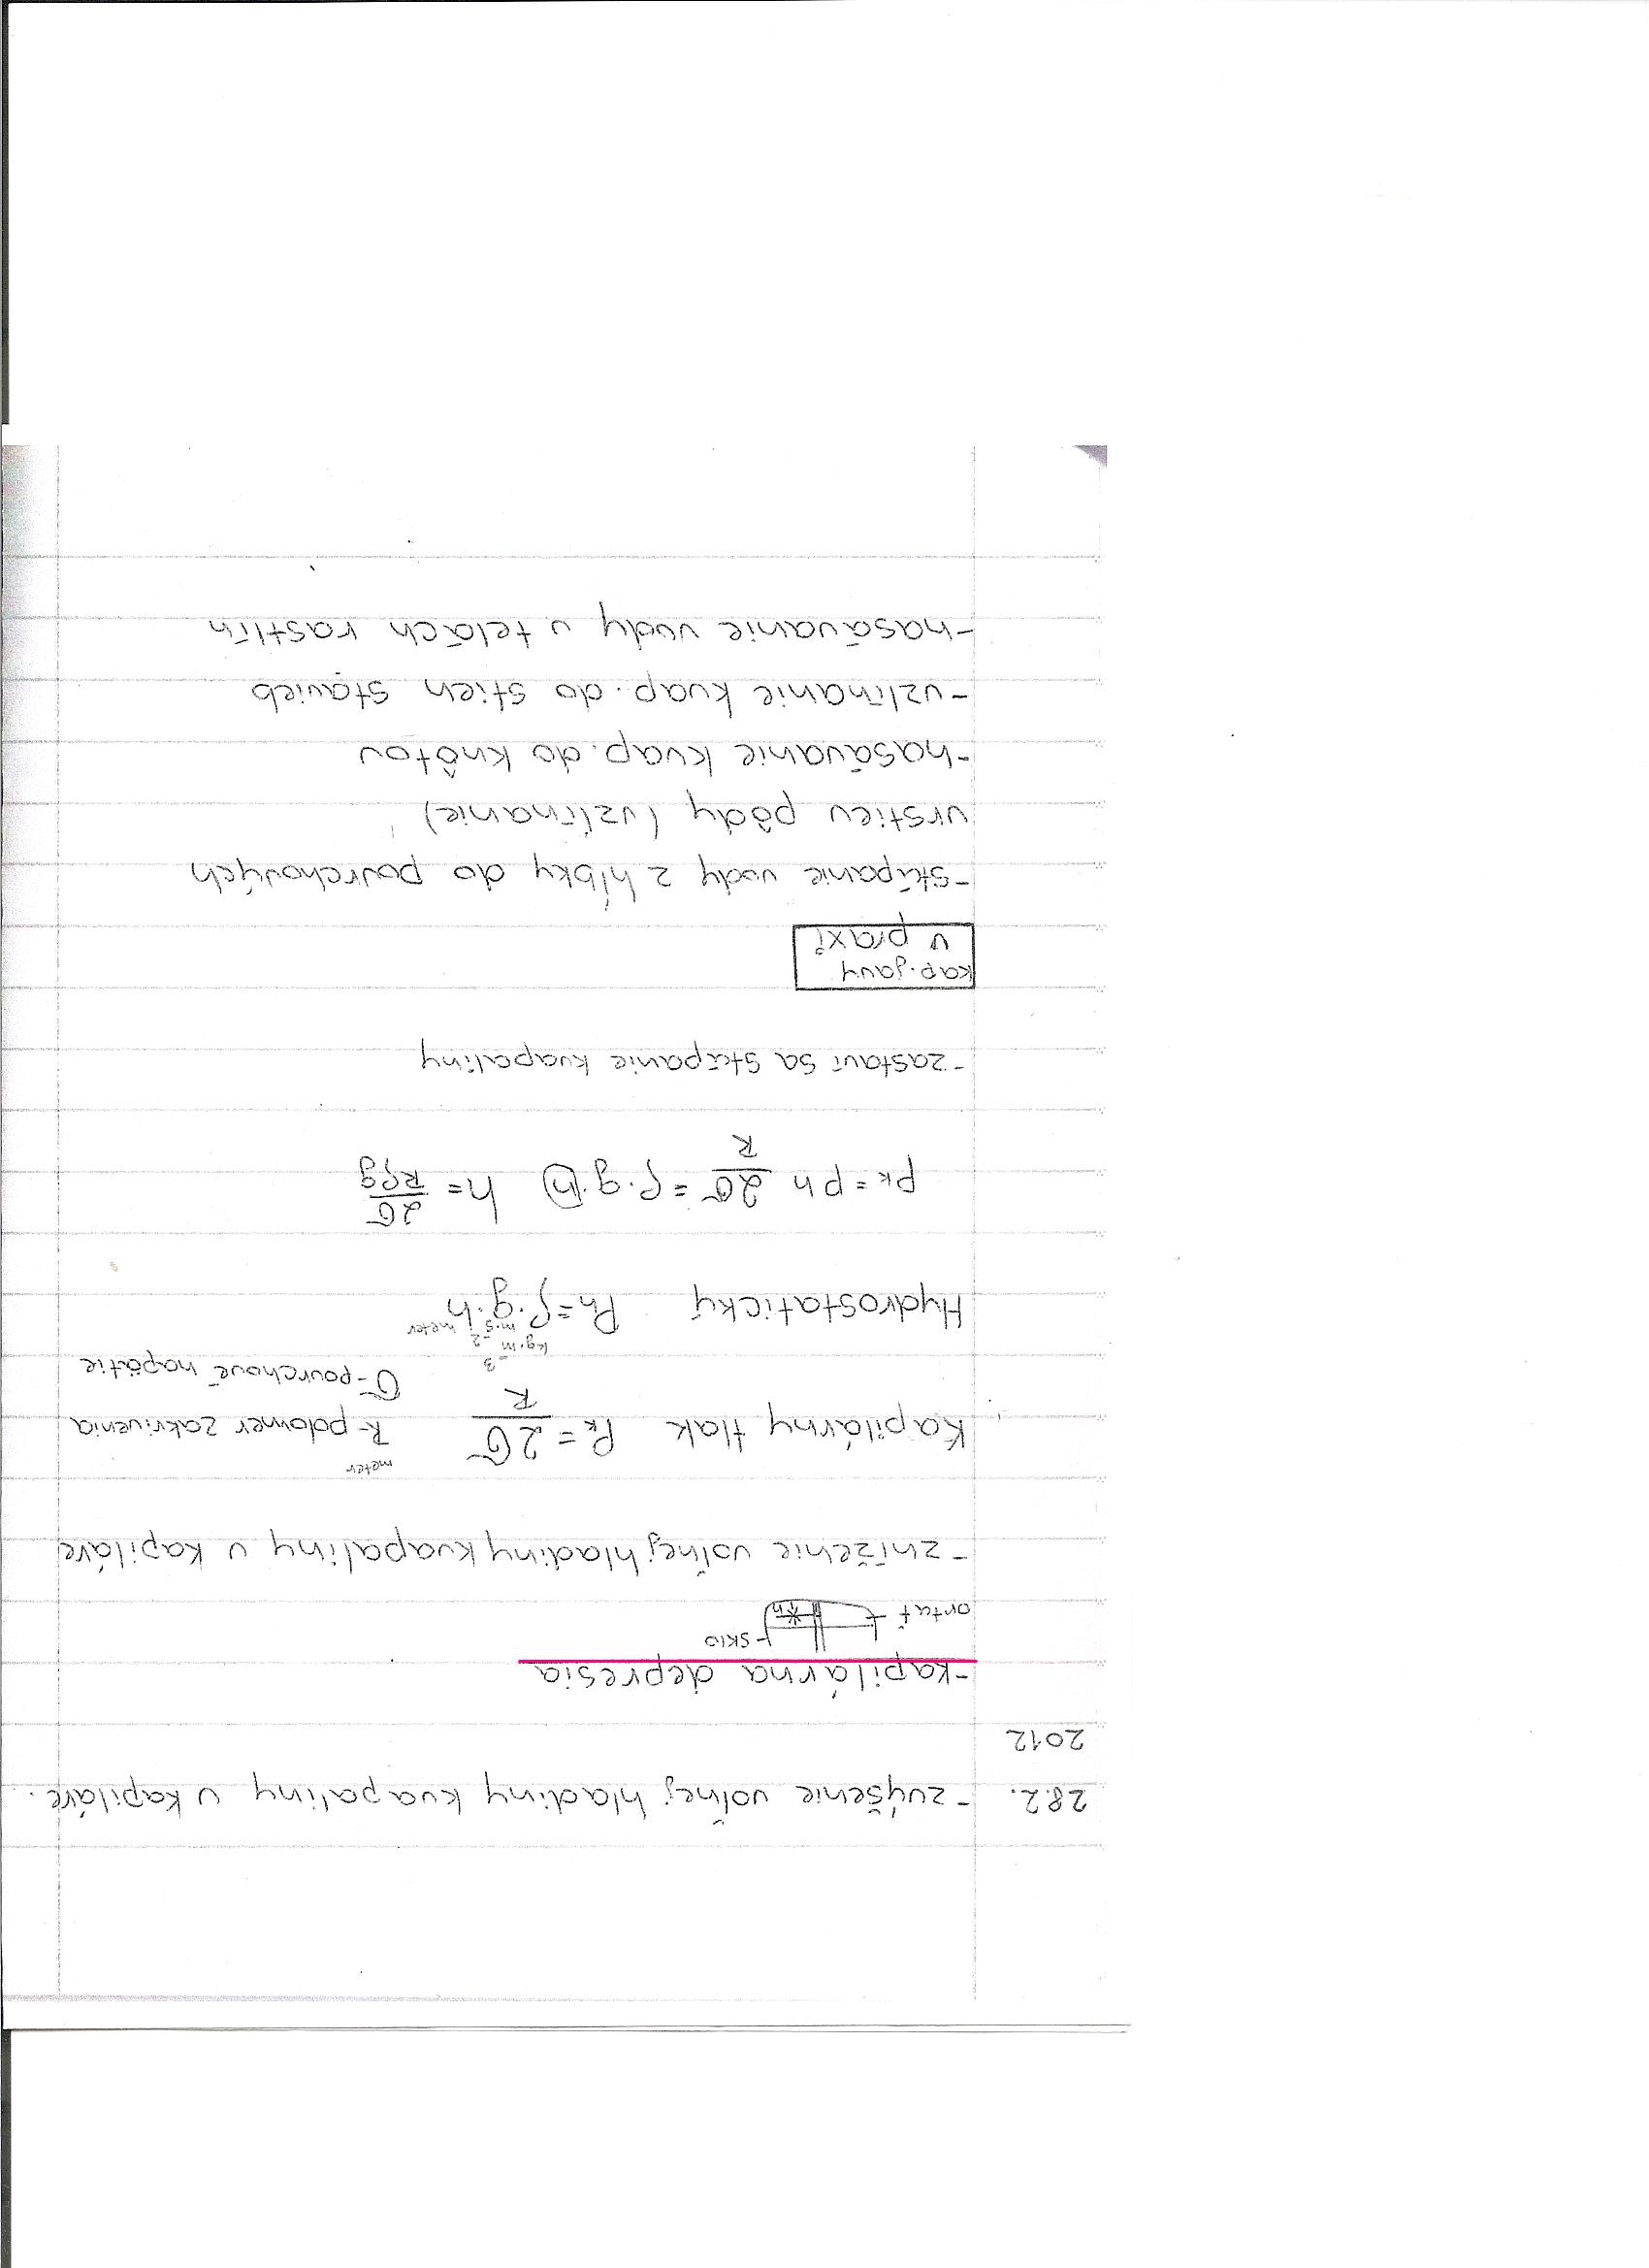 28.2. - zvýšenie voľnej hladiny kvapaliny v kapiláre.
2012
- kapilárna depresia
- sklo
ortuť
h
- zníženie voľnej hladiny kvapaliny v kapiláre
meter
Kapilárny tlak Pk = 2σ/R R - polomer zakrivenia
σ - povrchové napätie
kg.m⁻³ m.s⁻² meter
Hydrostatický Ph = ρ.g.h
pk = ph 2σ/R = ρ.g.h h = 2σ/Rρg
- zastaví sa stúpanie kvapaliny
kap. javy
v praxi
- stúpanie vody z hĺbky do povrchových
vrstiev pôdy (vzlínanie)
- nasávanie kvap. do knôtov
- vzlínanie kvap. do stien stavieb
- nasávanie vody v telách rastlín